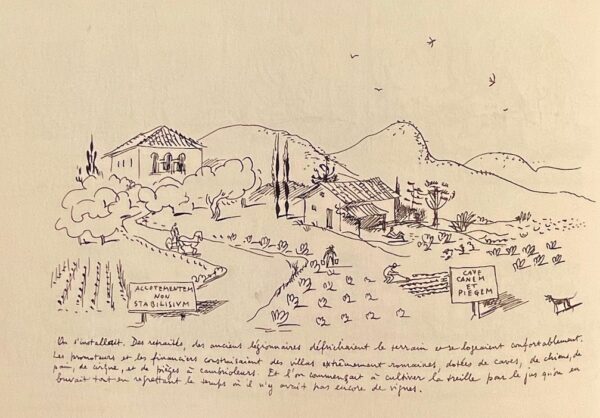 ACCOTEMENTEM
NON
STABILISIVM
CAVE
CANEM
ET
PIEGEM
On s'installait. Des retraités, des anciens légionnaires défrichaient le terrain et se logeaient confortablement.
Les promoteurs et les financiers construisaient des villas extrêmement romaines, dotées de caves, de chiens, de
pain, de cirque, et de pièges à cambrioleurs. Et l'on commençait à cultiver la treille pour le jus qu'on en
buvait tout en regrettant le temps où il n'y avait pas encore de vignes.